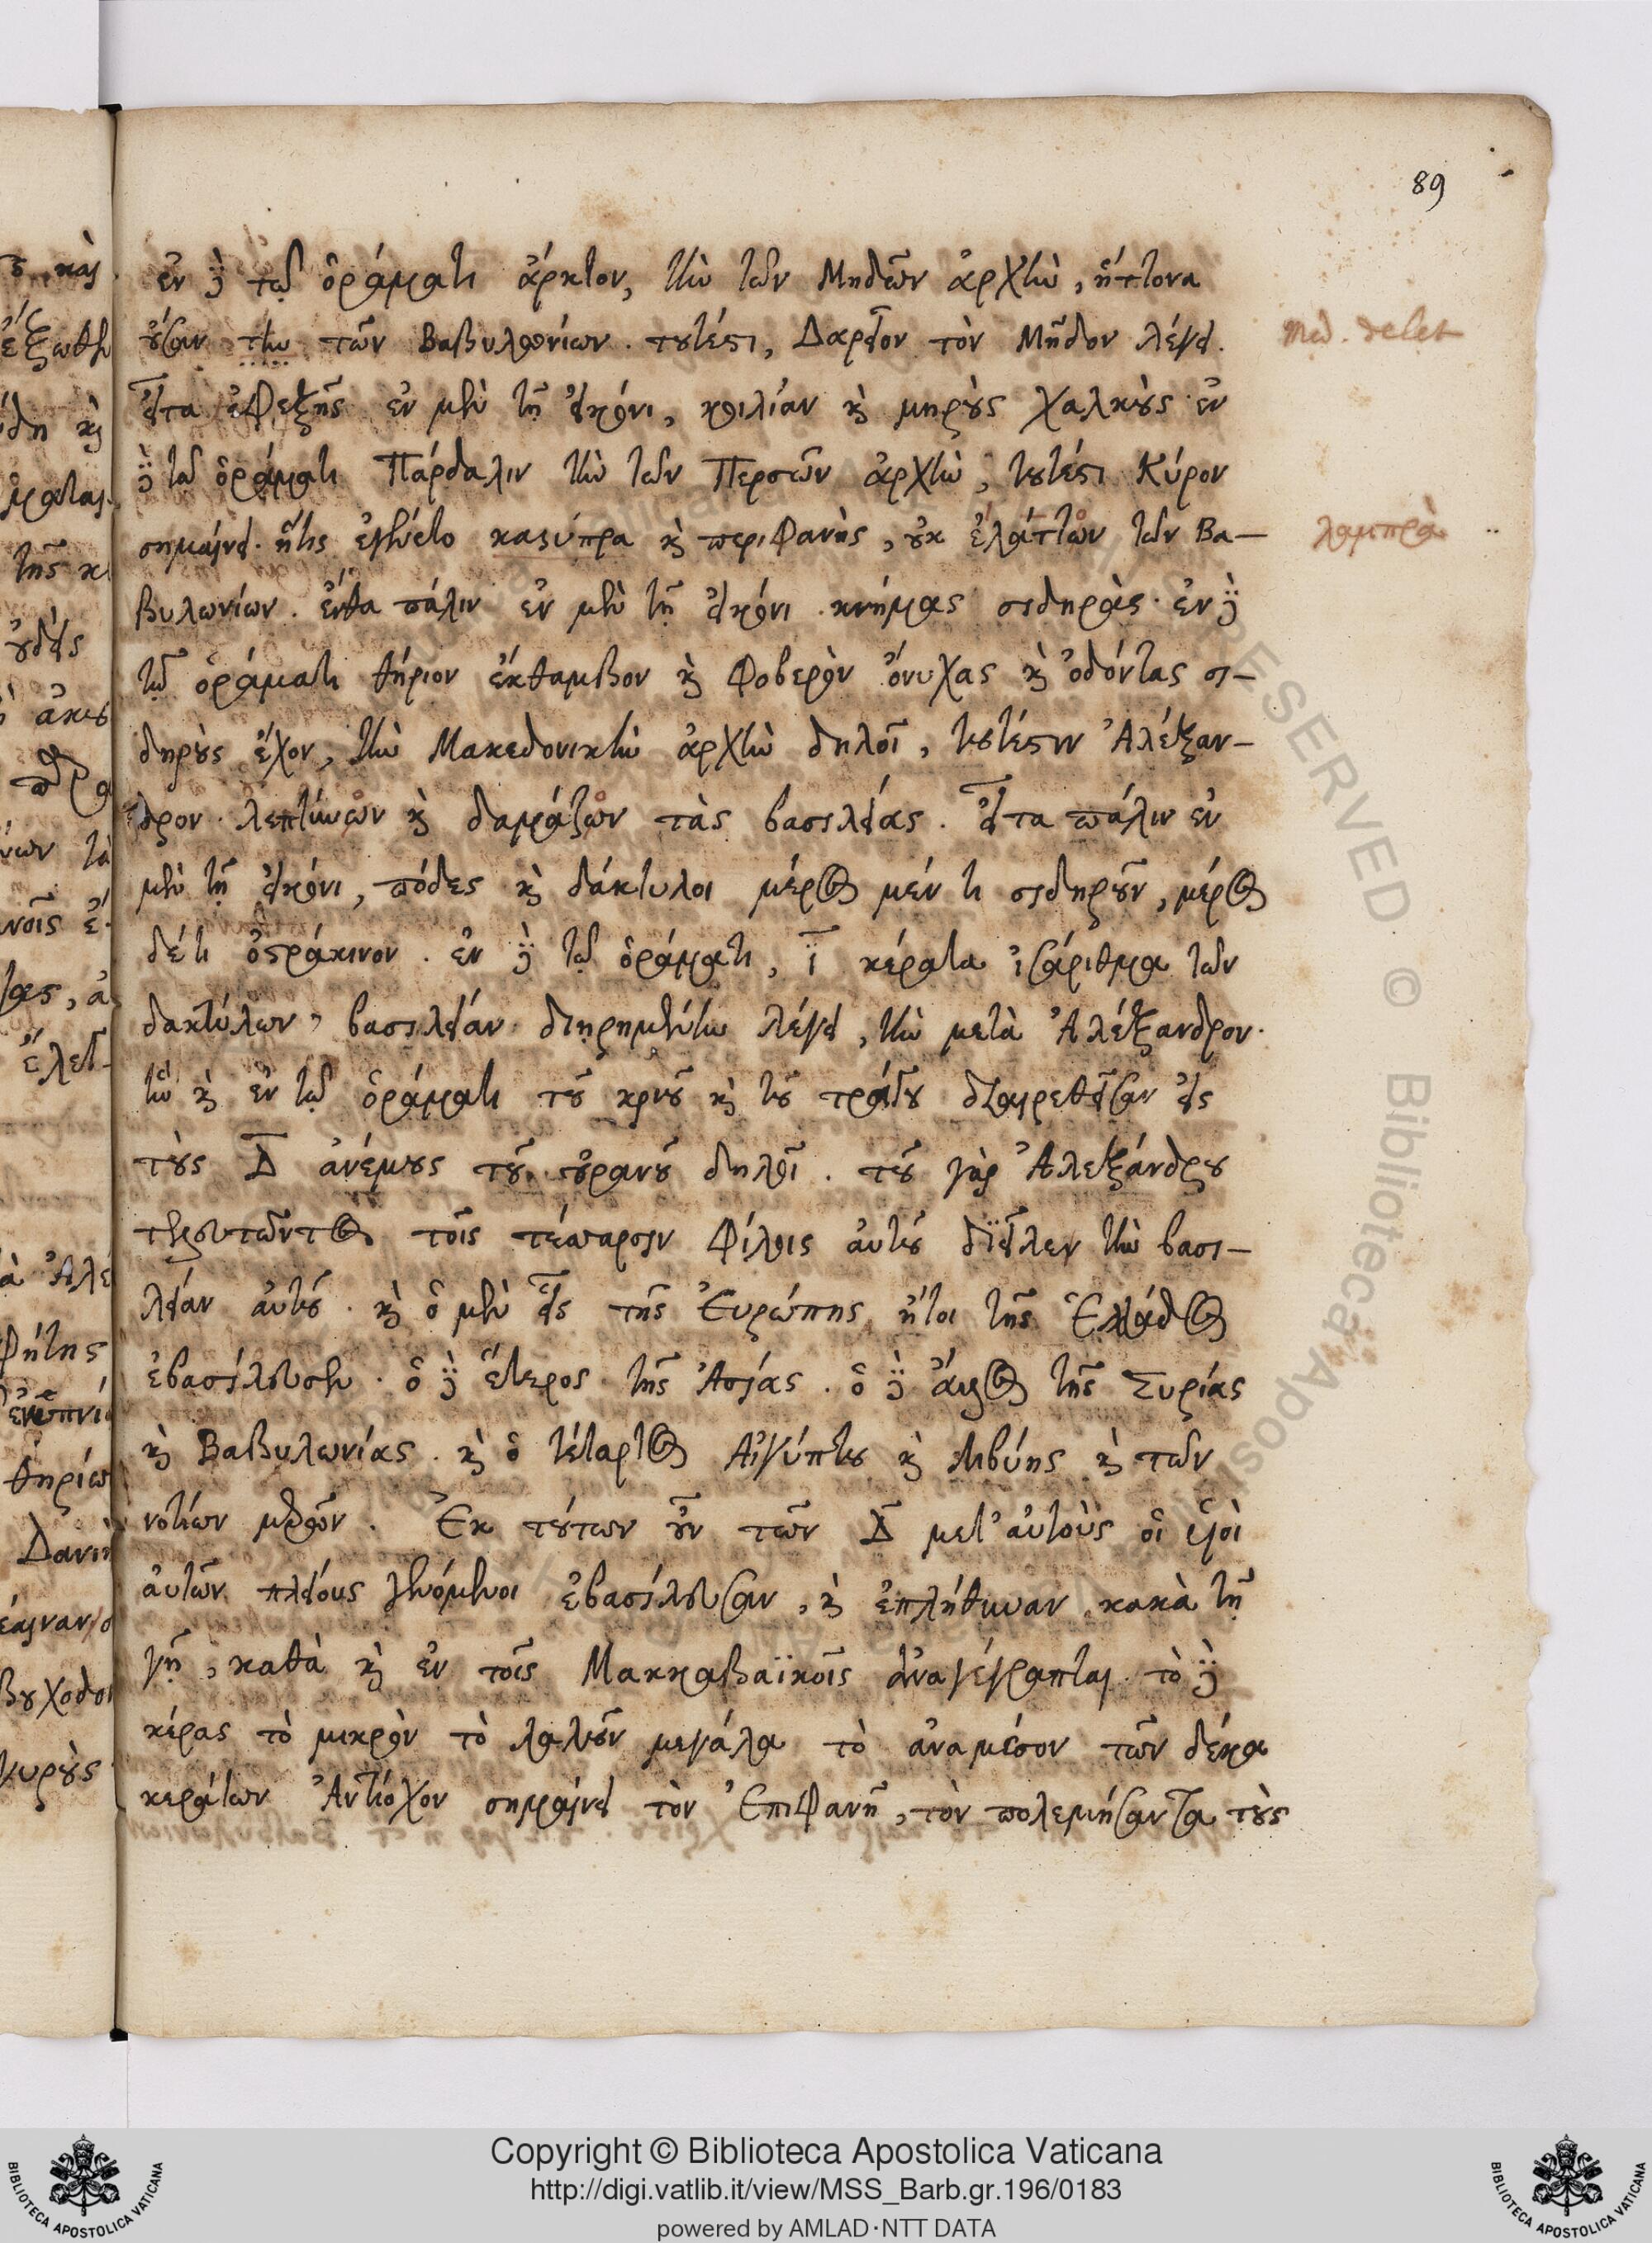 89
ἐν δὲ τῷ ὁράματι ἄρκτον, τὴν τῶν Μηδῶν ἀρχὴν, ἥττονα
οὖσαν τὴν τῶν Βαβυλωνίων. τουτέστι, Δαρεῖον τὸν Μῆδον λέγει.
Med. delet
εἶτα ἐφεξῆς ἐν μὲν τῇ εἰκόνι, κοιλίαν καὶ μηροὺς χαλκοῦς· ἐν
δὲ τῷ ὁράματι Πάρδαλιν τὴν τῶν Περσῶν ἀρχὴν, τουτέστι Κύρον
σημαίνει. ἥτις ἐγένετο καὶ περιφανὴς, οὐκ ἐλάττων τῶν Βα–
λαμπρὰ
βυλωνίων. ἔνθα πάλιν ἐν μὲν τῇ εἰκόνι κνήμας σιδηρᾶς· ἐν δὲ
τῷ ὁράματι θήριον ἔκθαμβον καὶ φοβερὸν ὄνυχας καὶ ὀδόντας σι–
δηροὺς ἔχον, τὴν Μακεδονικὴν ἀρχὴν δηλοῖ, τουτέστιν Ἀλέξαν–
δρον λεπτύνων καὶ δαμάζων τὰς βασιλείας. εἶτα πάλιν ἐν
μὲν τῇ εἰκόνι, πόδες καὶ δάκτυλοι μέρος μέν τι σιδηροῦν, μέρος
δέ τι ὀστράκινον. ἐν δὲ τῷ ὁράματι, ι κέρατα ἰσάριθμα τῶν
δακτύλων, βασιλείαν διῃρημένην λέγει, τὴν μετὰ Ἀλέξανδρον.
τὴν καὶ ἐν τῷ ὁράματι τοῦ κριοῦ καὶ τοῦ τράγου διαιρεθεῖσαν εἰς
τοὺς Δ ἀνέμους τοῦ οὐρανοῦ δηλοῖ. τοῦ γὰρ Ἀλεξάνδρου
τελευτῶντος τοῖς τέσσαρσιν φίλοις αὐτοῦ διεῖλεν τὴν βασι–
λείαν αὐτοῦ. καὶ ὁ μὲν εἷς τῆς Εὐρώπης ἤτοι τῆς Ἑλλάδος
ἐβασίλευσεν. ὁ δὲ ἕτερος τῆς Ἀσίας. ὁ δὲ ἄλλος τῆς Συρίας
καὶ Βαβυλωνίας. καὶ ὁ τέταρτος Αἰγύπτου καὶ Λιβύης καὶ τῶν
νοτίων μερῶν. Ἐκ τούτων οὖν τῶν Δ μετ' αὐτοὺς οἱ υἱοὶ
αὐτῶν πλείους γενόμενοι ἐβασίλευσαν, καὶ ἐπλήθυναν κακὰ τῇ
γῇ, καθὰ καὶ ἐν τοῖς Μακκαβαϊκοῖς ἀναγέγραπται. τὸ δὲ
κέρας τὸ μικρὸν τὸ λαλοῦν μεγάλα τὸ ἀναμέσον τῶν δέκα
κεράτων Ἀντίοχον σημαίνει τὸν Ἐπιφανῆ, τὸν πολεμήσαντα τοὺς
Copyright © Biblioteca Apostolica Vaticana
http://digi.vatlib.it/view/MSS_Barb.gr.196/0183
powered by AMLAD·NTT DATA